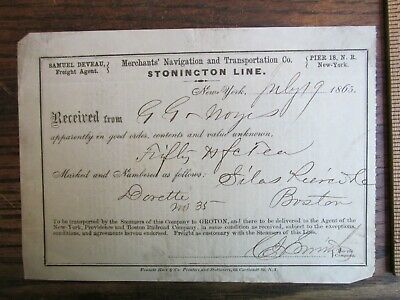 SAMUEL DEVEAU,
Freight Agent.
Merchants' Navigation and Transportation Co.
STONINGTON LINE.
PIER 18, N. R.
New-York.
New-York, July 19 1865.
Received from G G Noyes
apparently in good order, contents and value unknown,
Fifty
Marked and Numbered as follows: Silas
Boston
35
To be transported by the Steamers of this Company to GROTON, and there to be delivered to the Agent of the
New-York, Providence and Boston Railroad Company, in same condition as received, subject to the exceptions,
conditions, and agreements herein endorsed. Freight as customary with the Steamers of this Line.
For the
Company.
Francis Hart & Co. Printers and Stationers, 63 Cortlandt St. N.Y.